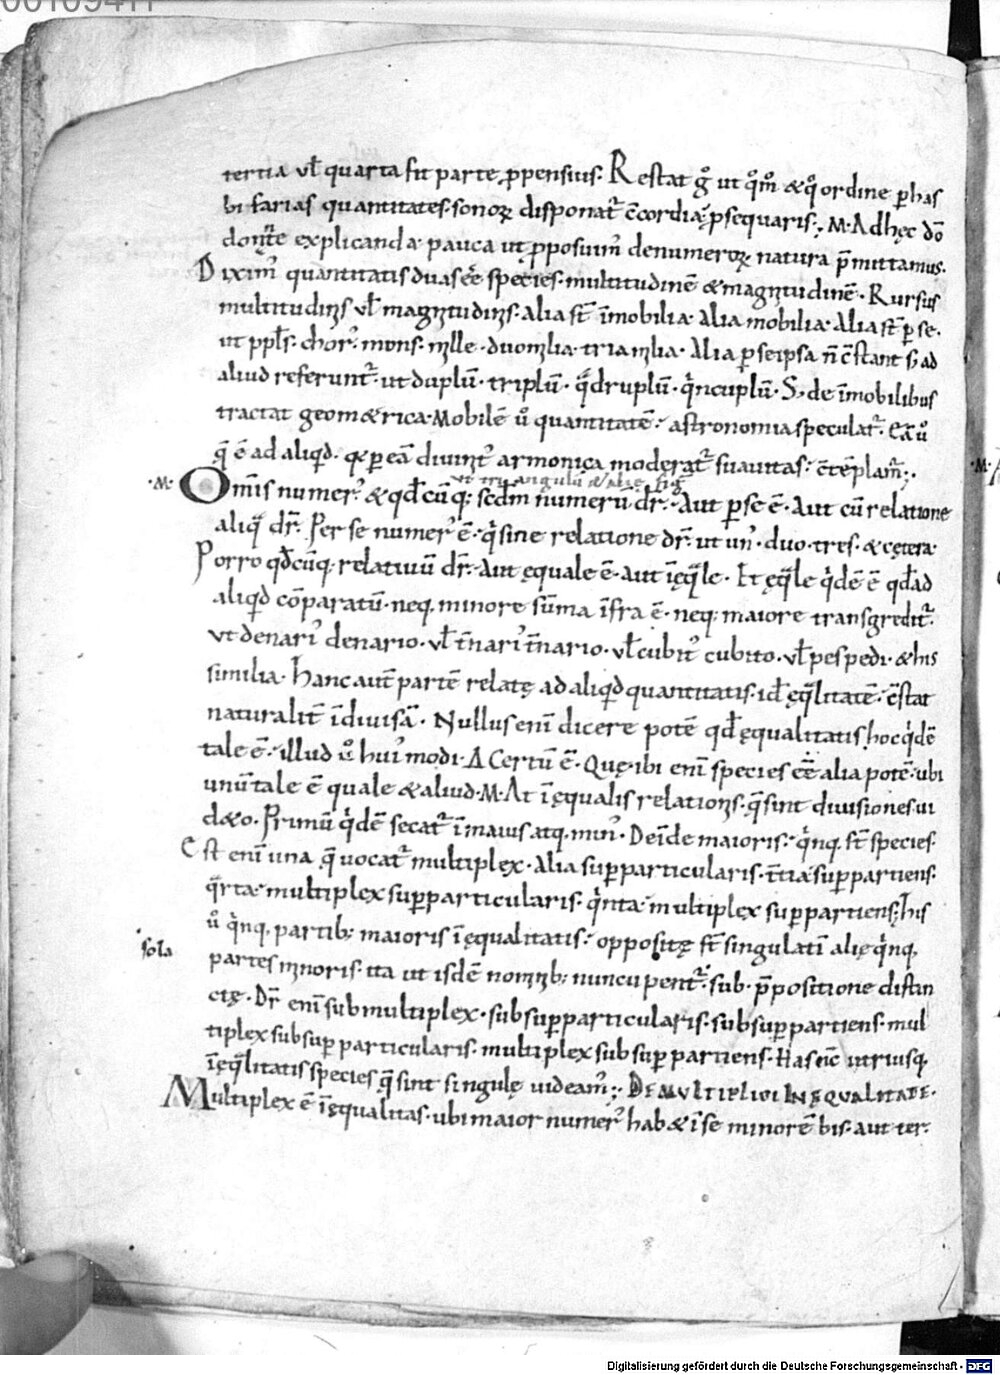 tertia vl̄ quarta fit parte ꝓpensius. Restat g̊ ut qm̊ & qͦ ordine ꝑ has
bifarias quantitates. sonoꝝ disponat᷑ c̄cordiȩ ꝓsequaris; M. Adhęc dō
donꝗ̄te explicanda pauca ut ꝓposuim᷒ de numeroꝝ natura p̄mittamus.
Dixim᷒ quantitatis duas eē species. multitudinē & magnitudinē. Rursus
multitudinis vl̄ magnitudinis. alia st̄ īmobilia. alia mobilia. alia st̄ ꝑ se.
ut ppl̄s. chor᷒. mons. mille. duo milia. tria milia. Alia ꝑ se ipsa n̄ c̄stant s; ad
aliud referunt᷑. ut duplū. triplū. qᷓdruplū. qͥncuplū. S; de īmobilibus
tractat geom&rica. Mobilē ů quantitatē. astronomia speculat᷑. Ea ů
qᷓ ē ad aliqd. & ꝑ eā diuinit᷒ armonica moderat᷑ suauitas. c̄tēplam᷑;
·M· Omīs numer᷒ & qd̄cūq; scdm̄ numerū dr̄. Aut ꝑ se ē. Aut cū relatione
ut triangulū & alię fig̅
aliqᷓ dr̄. Per se numer᷒ ē. qͥ sine relatione dr̄. ut un᷒. duo. tres. & cętera.
Porro qd̄cūq; relatiuū dr̄. Aut ęquale ē. aut īęqᷓle. Et ęqᷓle qͥdē ē qd̄ ad
aliqͥd cōparatū. neq; minore sūma īfra ē. neq; maiore transgredit᷑.
Vt denari᷒ denario. vl̄ t̄nari᷒ t̄nario. vl̄ cubit᷒ cubito. vl̄ pes pedi. & his
similia. Hanc aut̄ partē relatę ad aliqͥd quantitatis. id ē ęqᷓlitatē. c̄stat
naturalit̄ īdiuisā. Nullus enī dicere potē qd̄ ęqualitatis hoc qͥdē
tale ē. illud ů hui᷒ modi. Δ Certū ē. Quę ibi enī species eē alia potē. ubi
unū tale ē quale & aliud. M. At īęqualis relationis. qᷓ sint diuisiones ui
d&o. Primū qͥdē secat᷑ ī maius atq; min᷒. Deīde maioris. qͥnq; st̄ species.
Est enī una. qᷓ uocat᷑ multiplex. Alia suꝑparticularis. t̄tia suꝑpartiens.
qᷓrta. multiplex suꝑparticularis. qͥnta multiplex suꝑpartiens; his
ů qͥnq; partib; maioris īęqualitatis. oppositę st̄ singulatī alię qͥnq;
sola
partes minoris. ita ut isdē nominib; nuncupent᷑. sub. p̄positione distan
cię. Dr̄ enī submultiplex. subsuꝑparticularis. subsuꝑpartiens. mul
tiplex subsuꝑparticularis. multiplex subsuꝑpartiens. Has nc̄ utriusq;
īęqᷓlitatis species qᷓ sint singulę uideam᷒; DE MULTIPLICI INĘQUALITATE.
Multiplex ē īęqualitas. ubi maior numer᷒ hab& ī se minorē bis. aut ter.
Digitalisierung gefördert durch die Deutsche Forschungsgemeinschaft - DFG